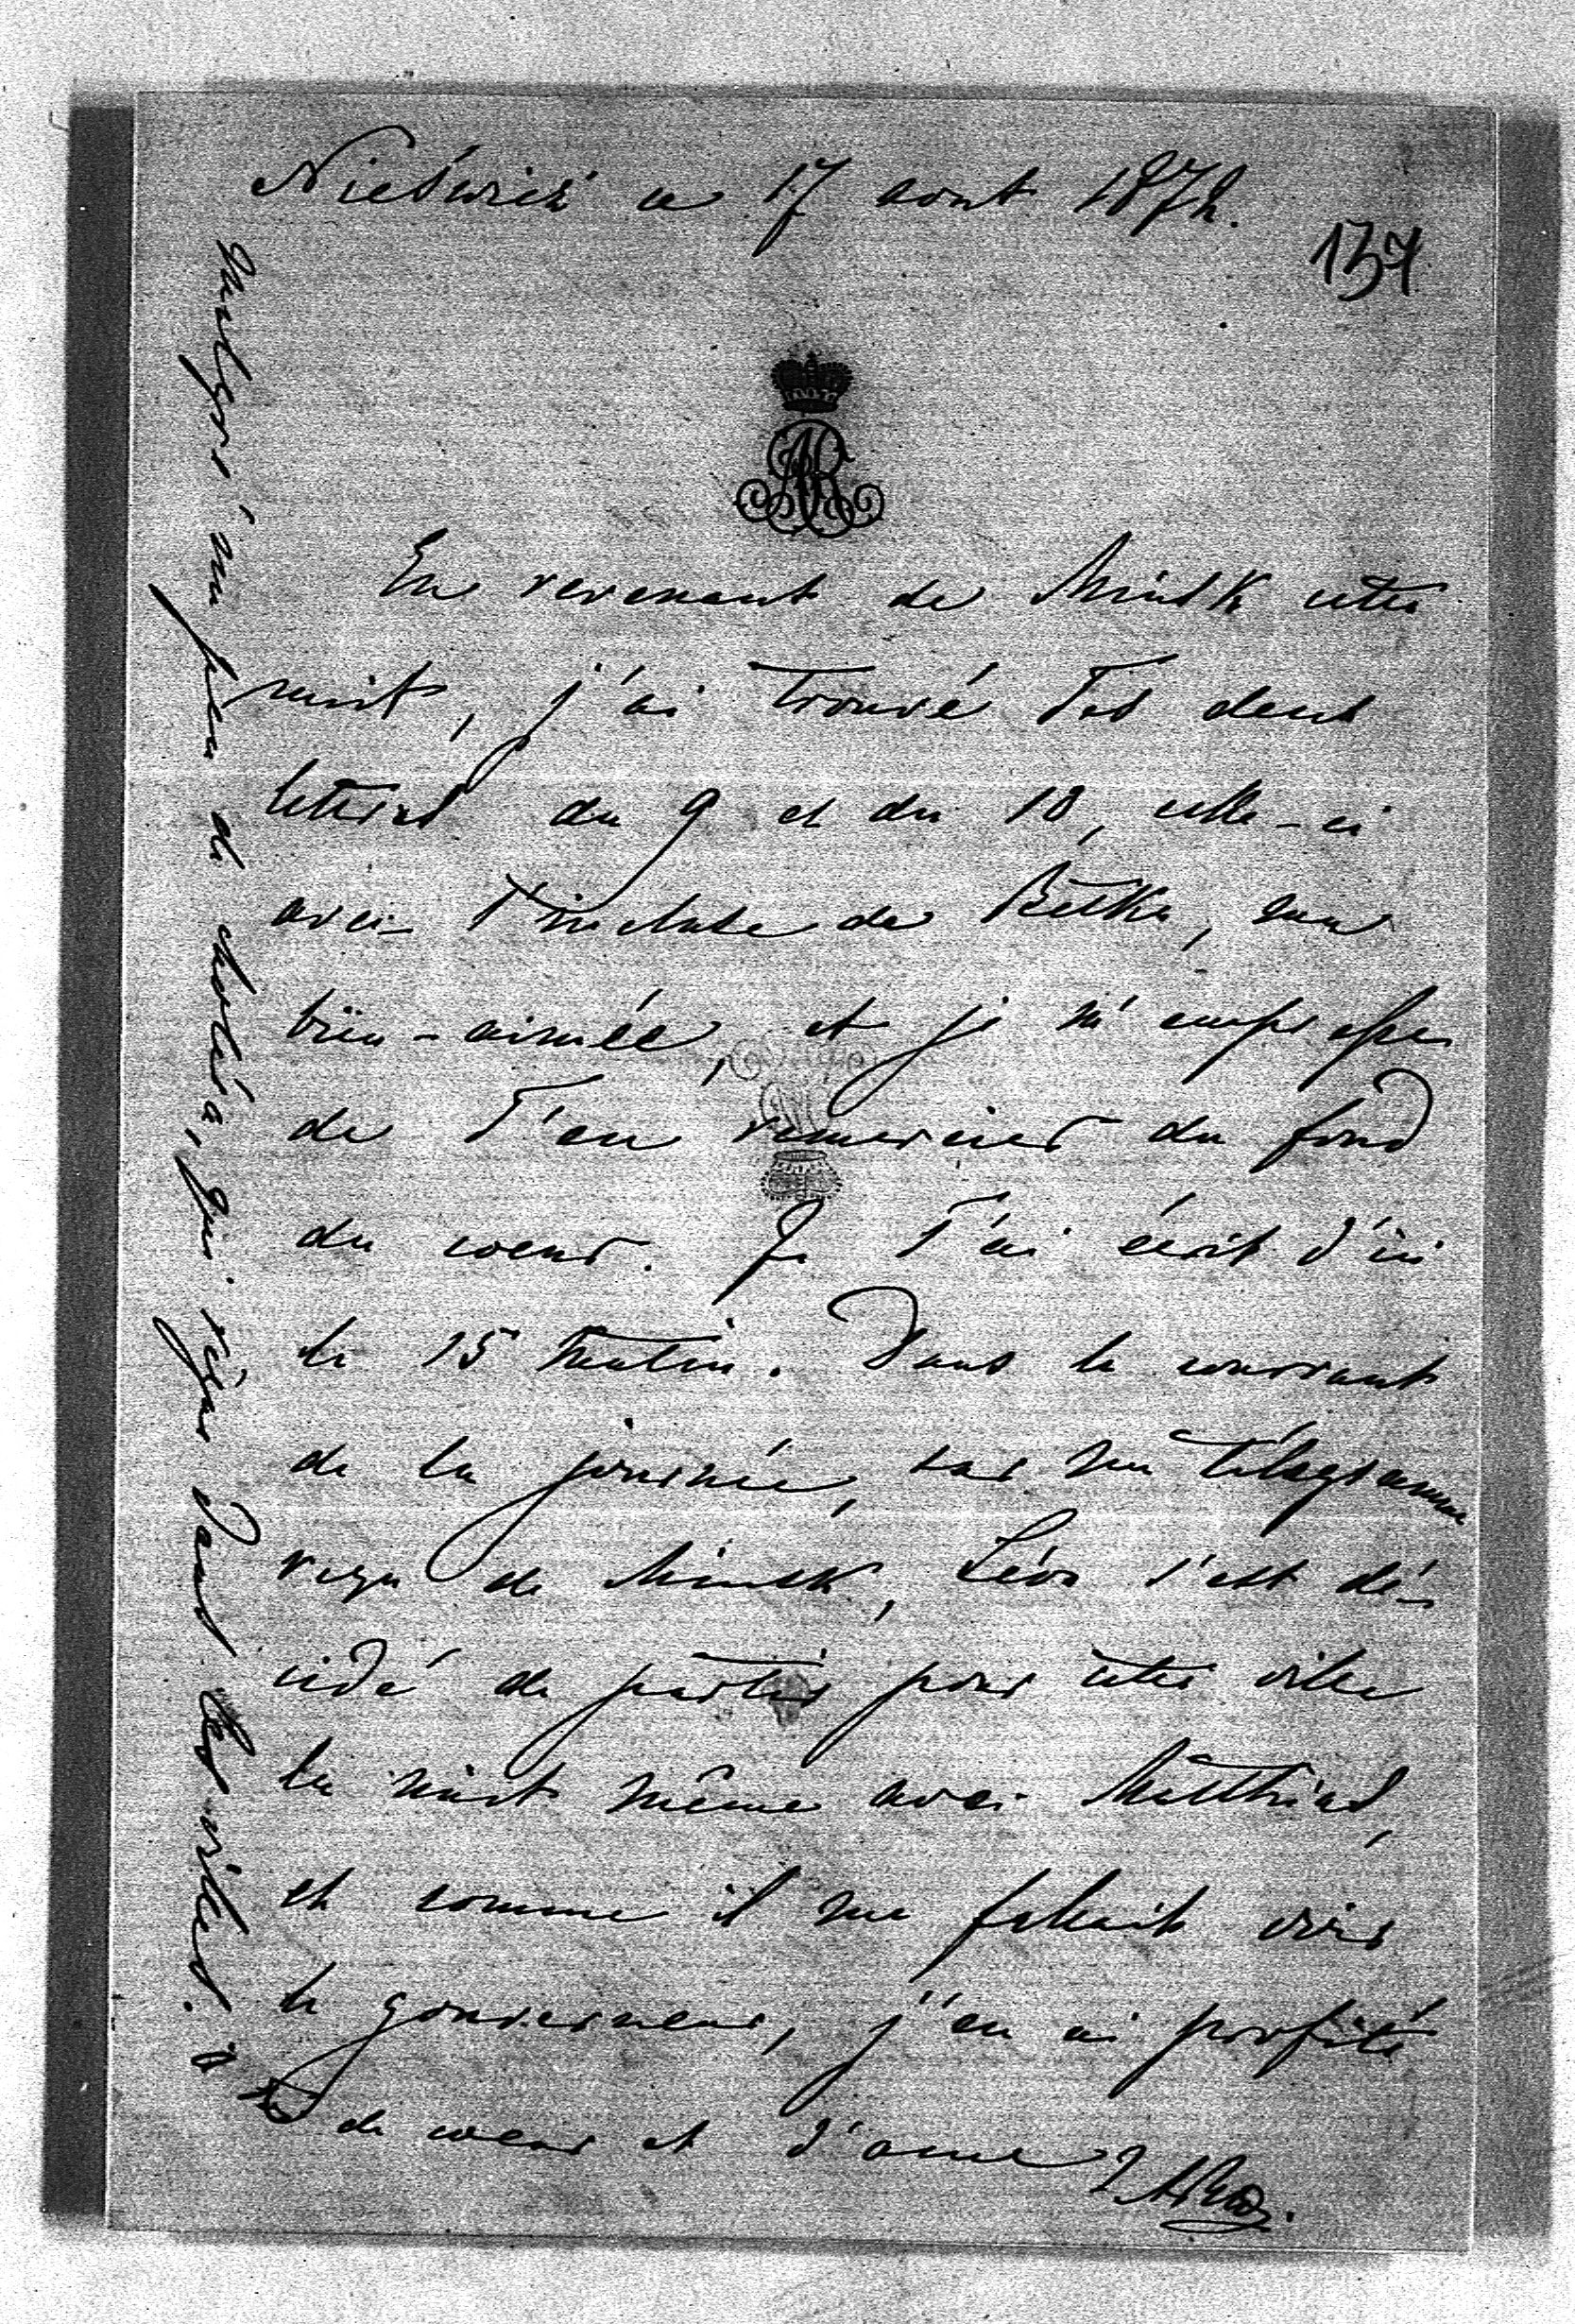 Nieśwież ce 17 aout 1872.
137
AR
En revenant de Minsk cette
nuit, j'ai trouvé Tes deux
lettres du 9 et du 10, celle-ci
avec l'incluse de Betka, ma
bien-aimée, et je m'empresse
de T'en remercier du fond
du coeur. Je T'ai écrit d'ici
le 15 matin. Dans le courrant
de la journée, sur un télégramme
reçu de Minsk, Léon s'est dé-
cidé de partir pour cette ville
la nuit même avec Matthias,
et comme il me fallait voir
le gouverneur, j'en ai profité
malgré un peu de choléra, qui règne dans les villes. à
Toi de coeur et d'ame